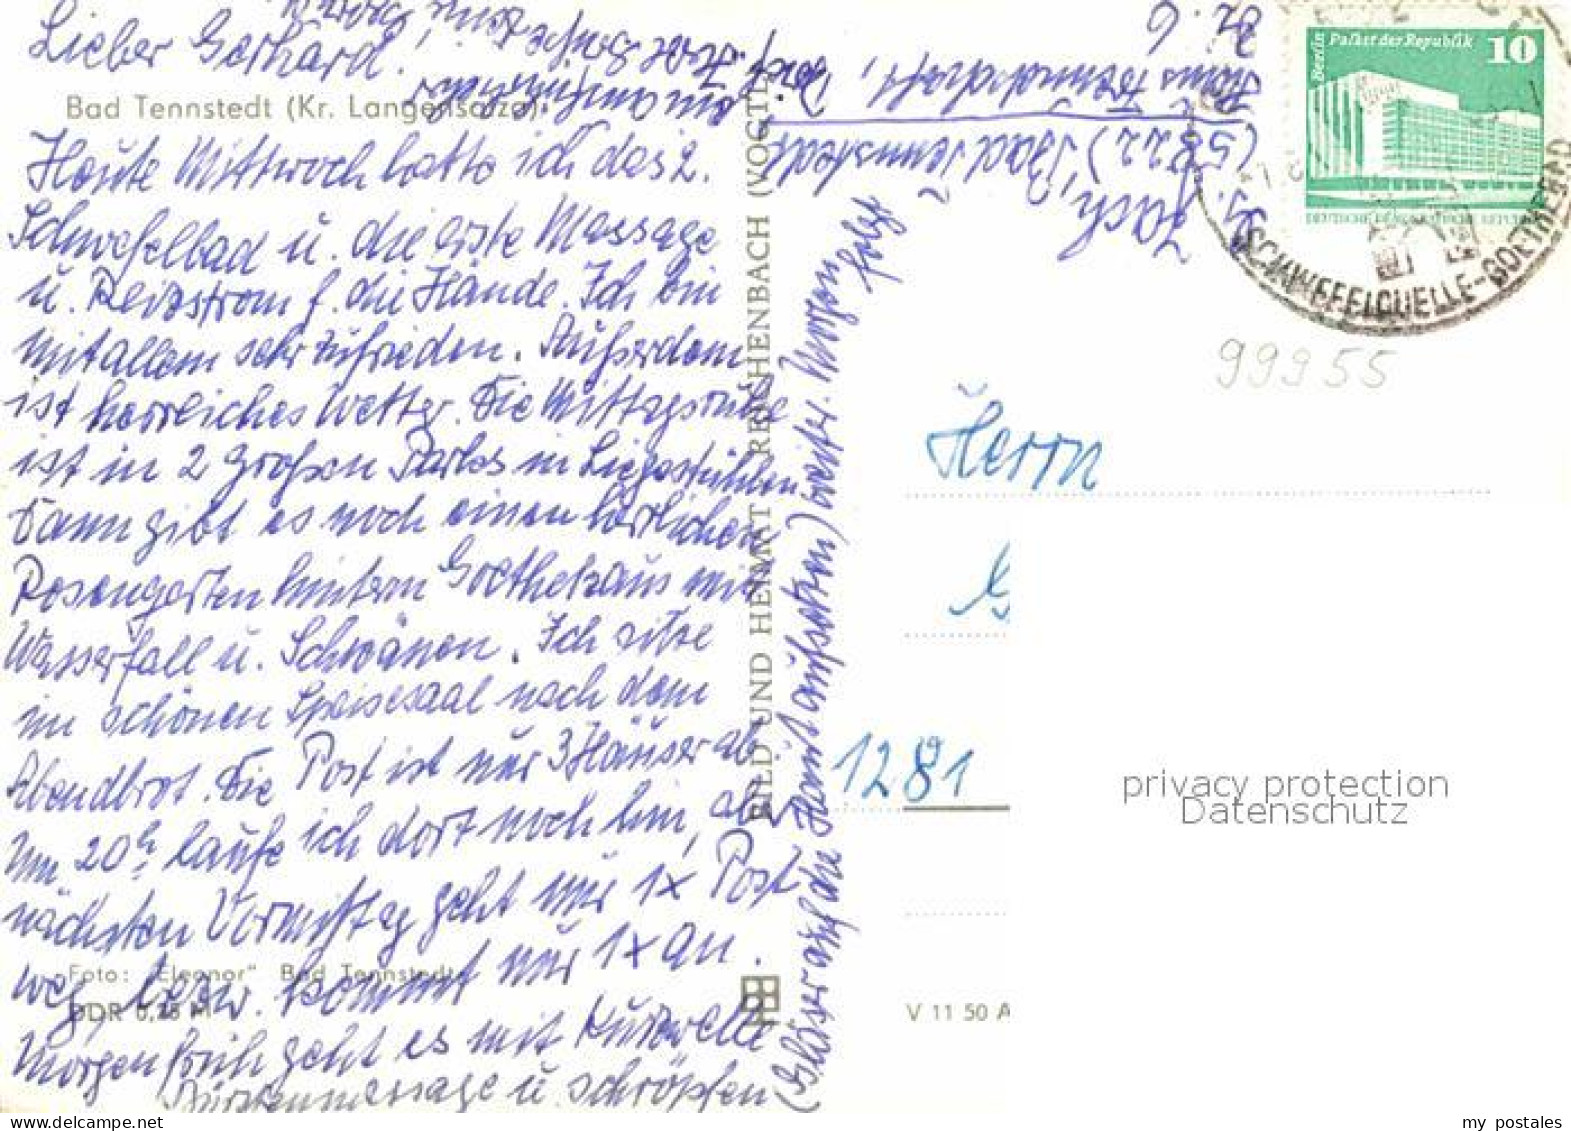 Lieber Gerhard.
Bad Tennstedt (Kr. Langensalza)
Heute Mittwoch hatte ich das 2.
Schwefelbad u. die erste Massage
u. Reizstrom f. die Hände. Ich bin
mit allem sehr zufrieden. Außerdem
ist herrliches Wetter. Die Mittagsruhe
ist in 2 großen Parks in Liegestühlen.
Dann gibt es noch einen herrlichen
Rosengarten hinterm Goethehaus mit
Wasserfall u. Schwänen. Ich sitze
im schönen Speisesaal nach dem
Abendbrot. Die Post ist nur 3 Häuser ab
Um 20h laufe ich dort noch hin, ab
nächsten Vormittag geht nur 1x Post
weg, bezw. kommt nur 1x an.
Morgen früh geht es mit Kurzwelle
Bürstenmassage u. schröpfen
(Gläser auf die Haut aufsetzen) weiter. Morgen
folgt
Foto: "Eleonor" Bad Tennstedt
DDR 0,25 M
BILD UND HEIMAT REICHENBACH (VOGTL)
V 11 50 A
(5822) Bad Tennstedt
Berlin Palast der Republik 10
DEUTSCHE DEMOKRATISCHE REPUBLIK
SCHWEFELQUELLE-GOETHEBAD
99955
Herrn
G
1281
privacy protection
Datenschutz
my_postales